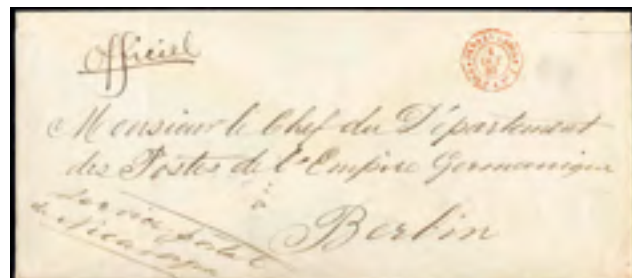 Officiel
Monsieur le Chef du Département
des Postes de l'Empire Germanique
à
Berlin
Service Postal
de Nicaragua